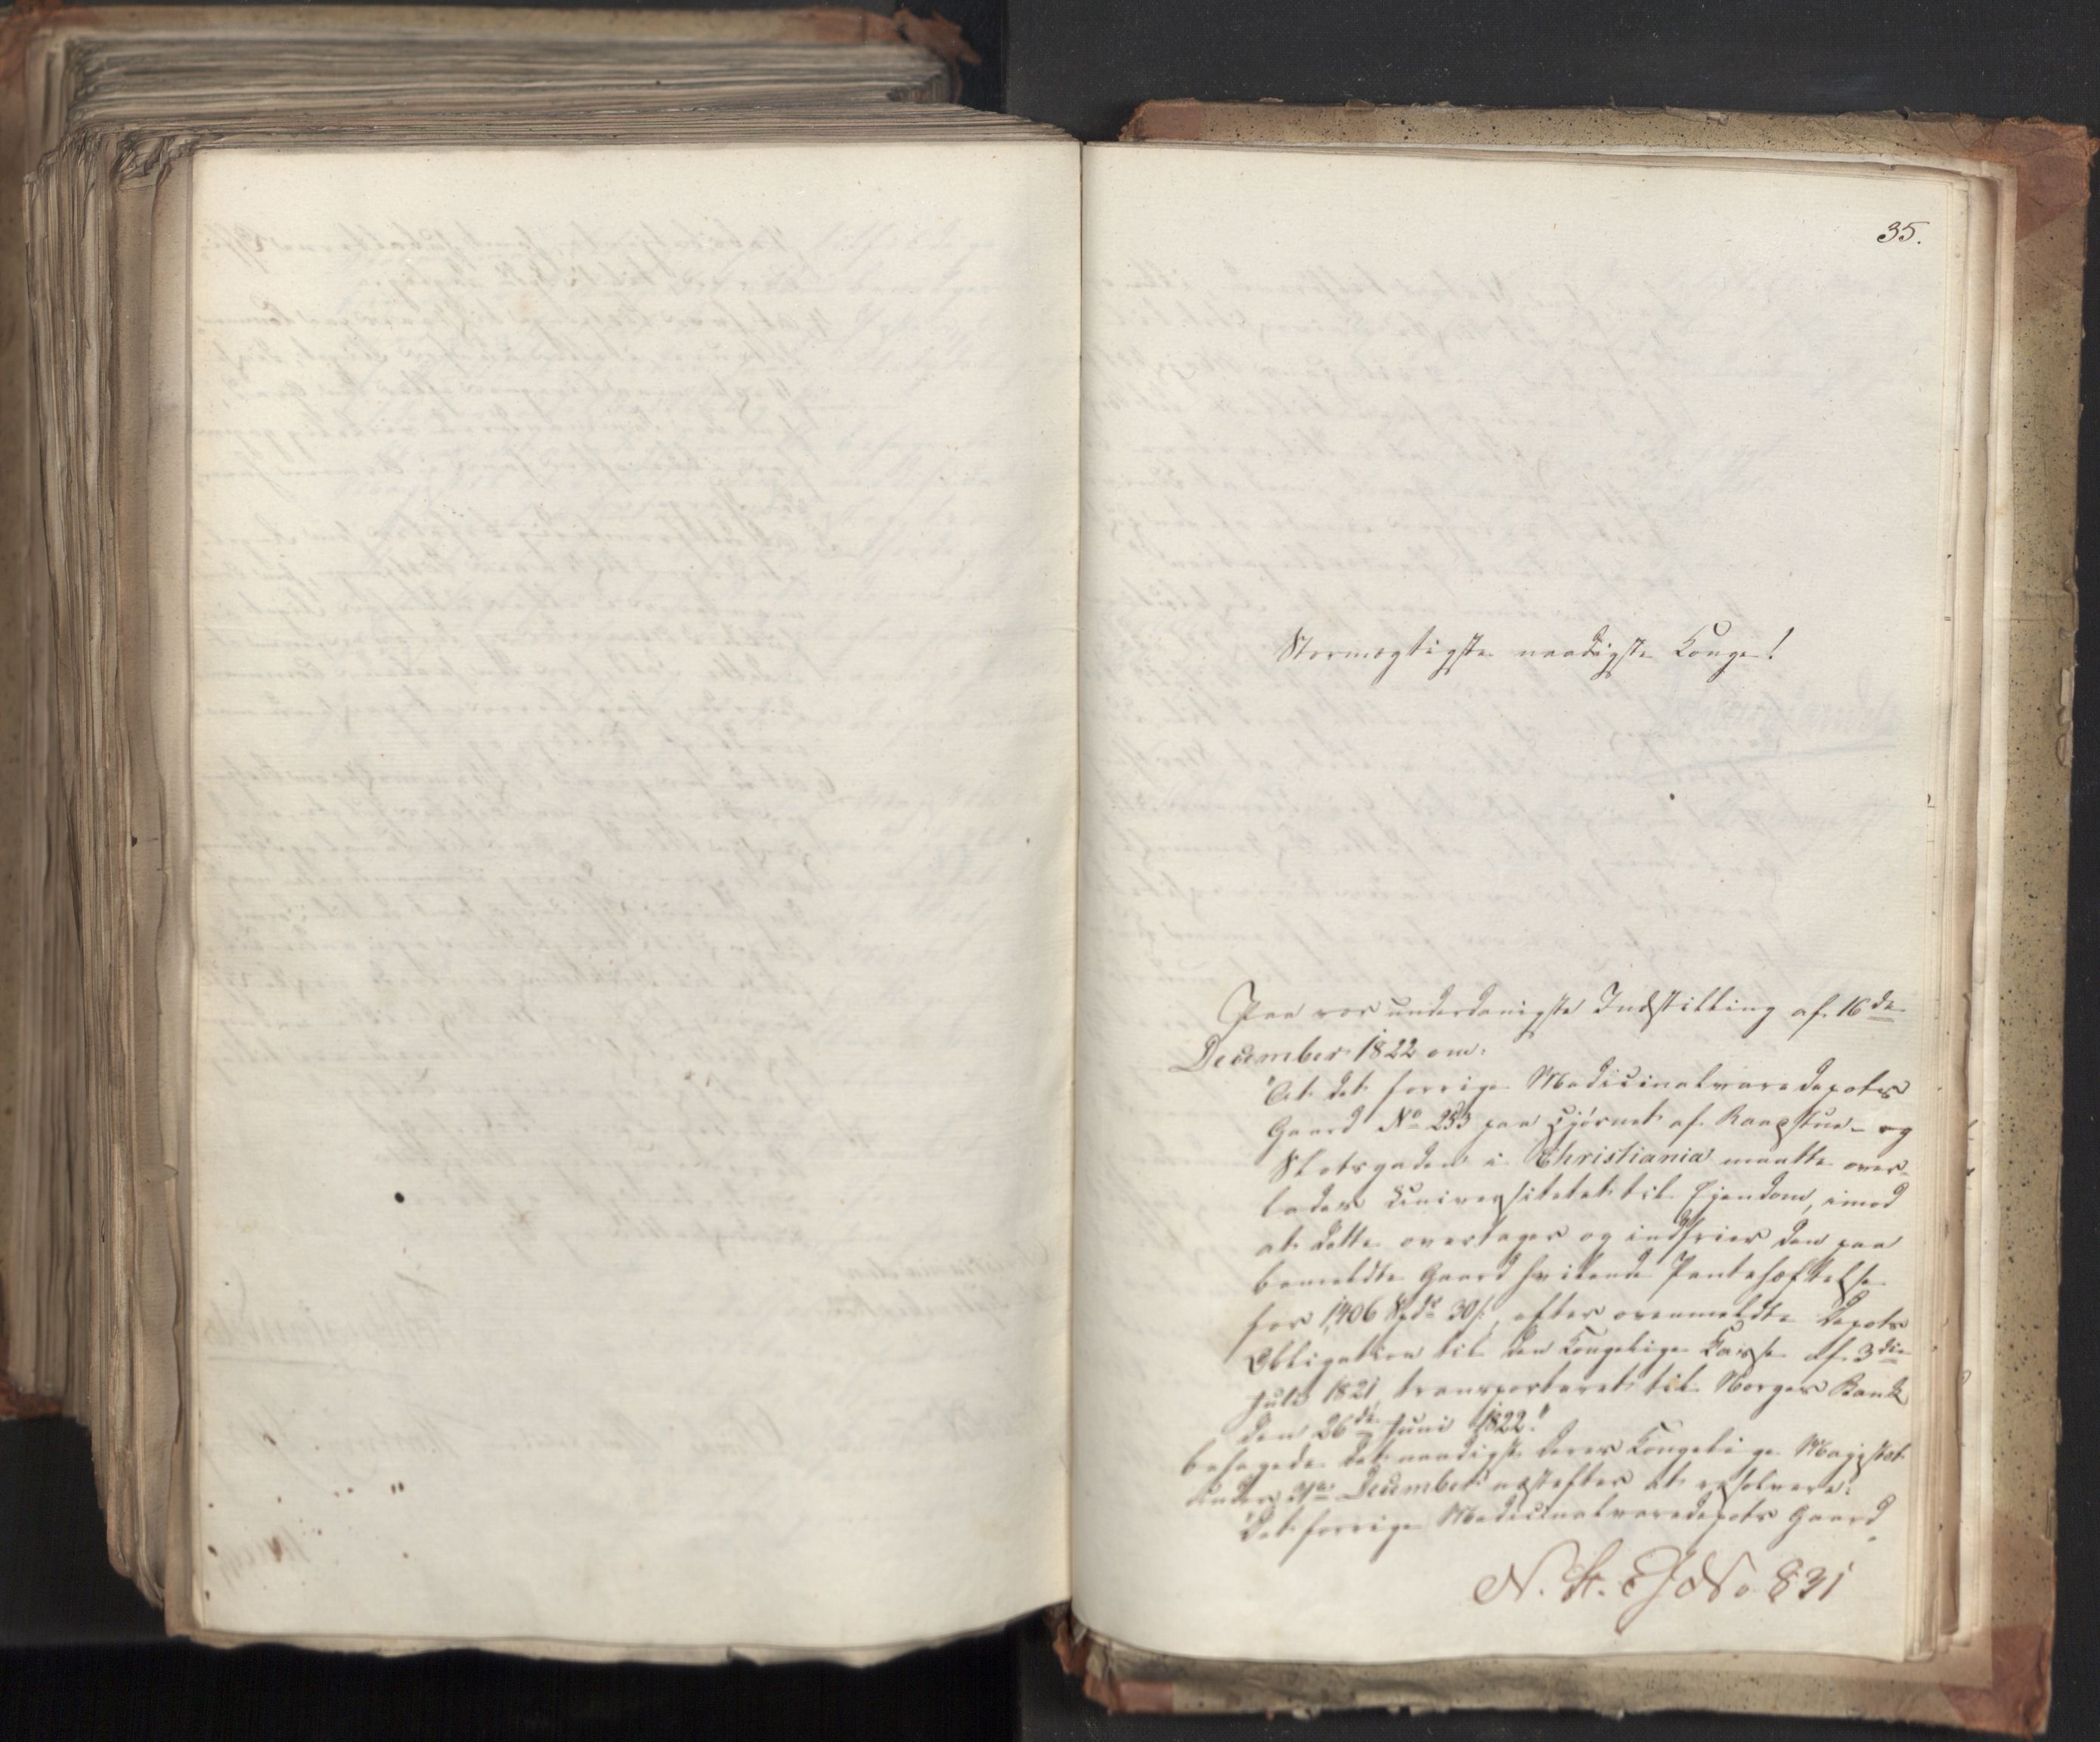 35.
Stormægtigste naadigste Konge!
Paa vor underdanigste Indstilling af 16de
December 1822 om:
"At det forrige Medicinalvaredepots
Gaard No 253 paa Hjørnet af Raadstue- og
Slotsgaden i Christiania maatte over-
lades Universitetet til Ejendom, imod
at dette overtager og indfrier den paa
bemeldte Gaard hvilende Pantehæftelse
for 1,406 Spdr 30 s, efter ovenmeldte Depots
Obligation til den Kongelige Kasse af 3die
Juli 1821, transporteret til Norges Bank
den 26de Juni 1822."
behagede det naadigst Deres Kongelige Majestæt
under December næstefter at resolvere:
"Det forrige Medicinalvaredepots Gaard
N. St. E J No 831